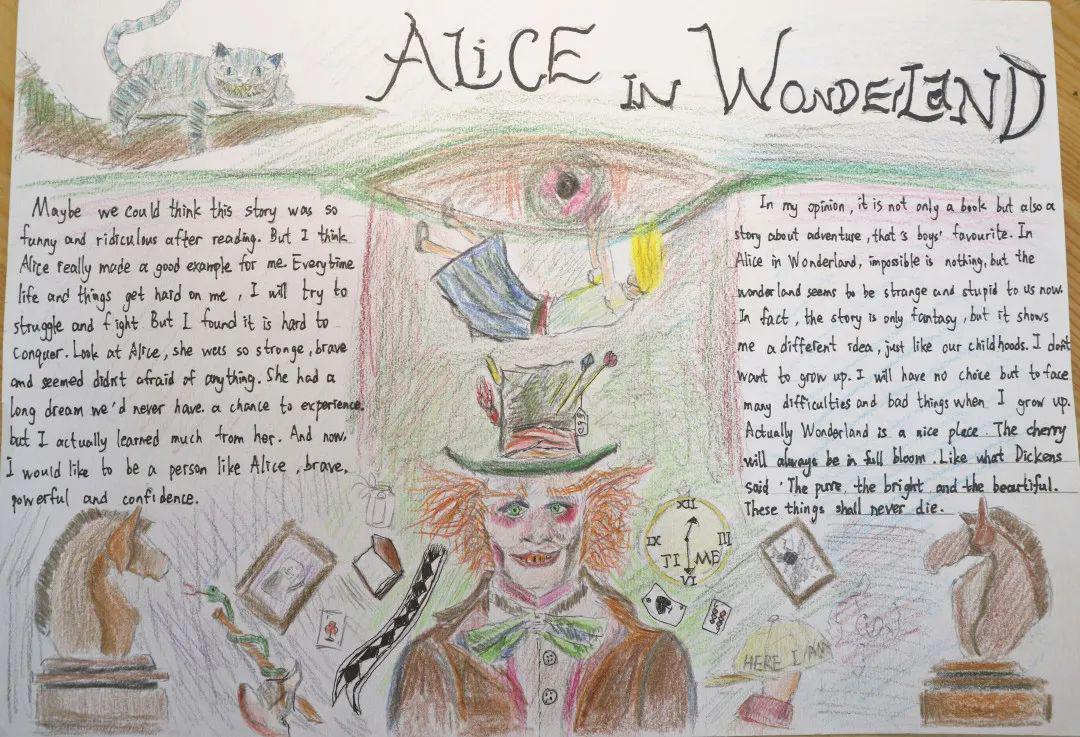 ALiCE IN WONDERLAND
Maybe we could think this story was so
funny and ridiculous after reading. But I think
Alice really made a good example for me. Everytime
life and things get hard on me, I will try to
struggle and fight. But I found it is hard to
conquer. Look at Alice, she was so strong, brave
and seemed didn't afraid of anything. She had a
long dream we'd never have a chance to experience.
but I actually learned much from her. And now,
I would like to be a person like Alice, brave,
powerful and confidence.
In my opinion, it is not only a book but also a
story about adventure, that's boys' favourite. In
Alice in Wonderland, impossible is nothing, but the
wonderland seems to be strange and stupid to us now.
In fact, the story is only fantasy, but it shows
me a different idea, just like our childhoods. I don't
want to grow up. I will have no choice but to face
many difficulties and bad things when I grow up.
Actually Wonderland is a nice place. The cherry
will always be in full bloom. Like what Dickens
said 'The pure, the bright, and the beautiful.
These things shall never die.
XII
IX III
TI ME
VI
HERE I AM